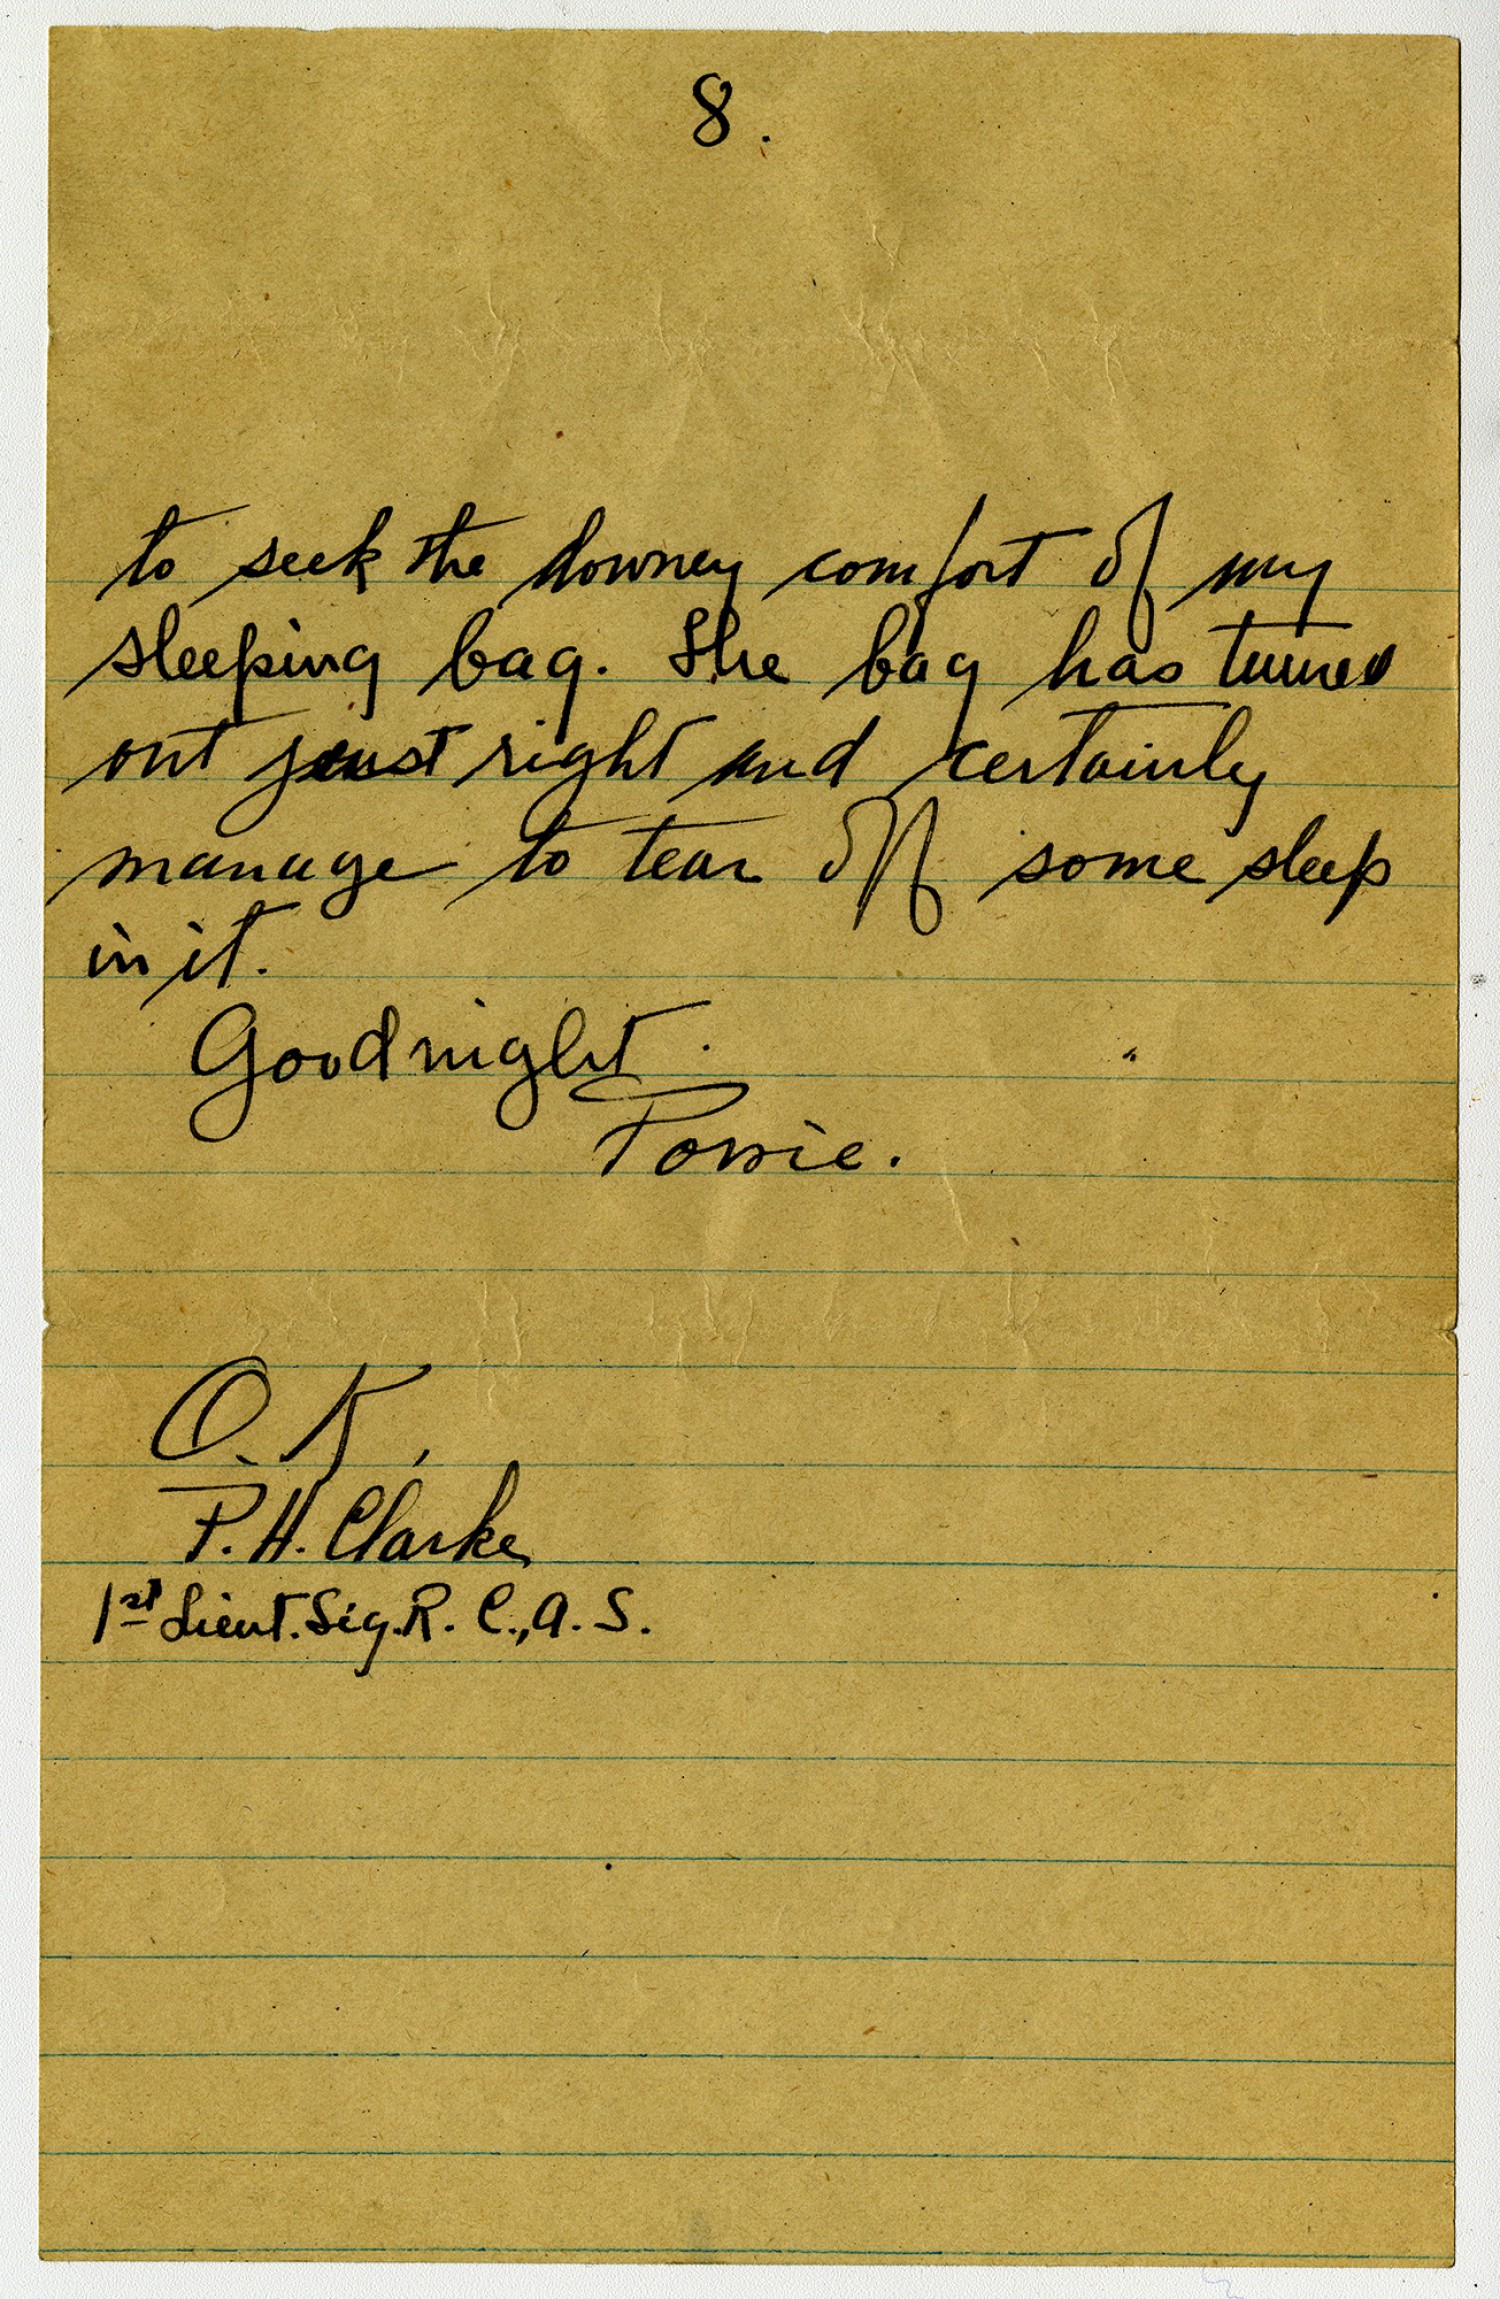 8.
to seek the downey comfort of my
sleeping bag. The bag has turned
out just right and certainly
manage to tear off some sleep
in it.
Goodnight.
Powie.
O.K.,
P.H. Clarke,
1st Lieut. Sig. R. C., A. S.